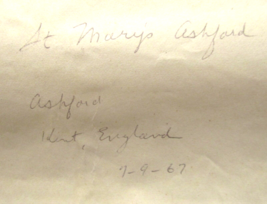 St Marys Ashford
Ashford
Kent, England
7-9-67